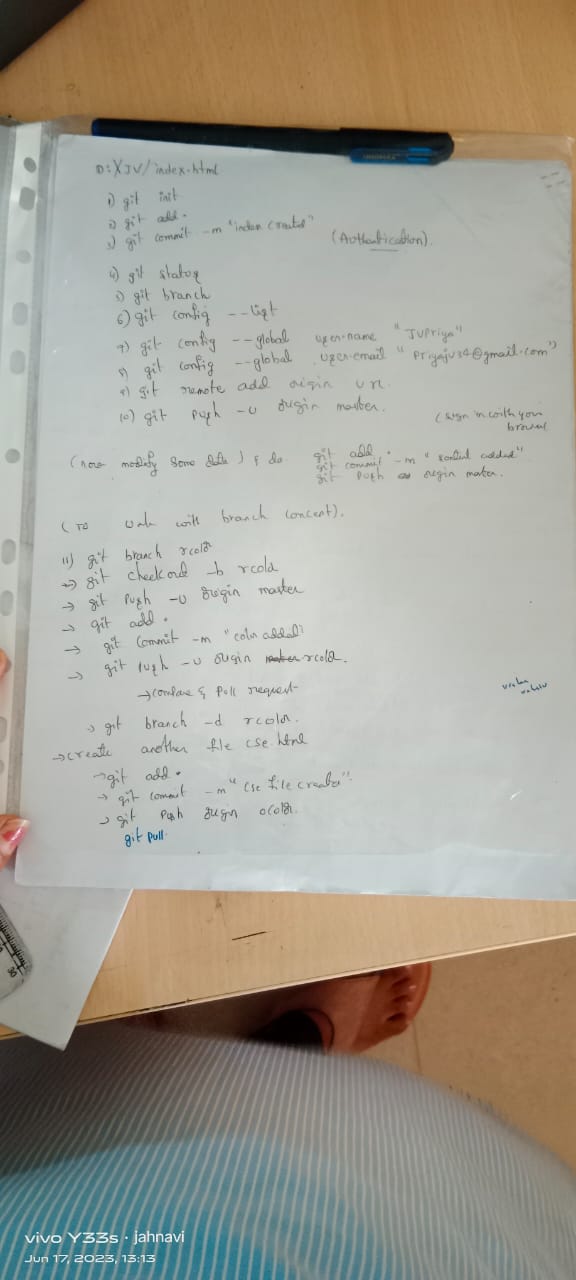 D:\XJV/index.html
1) git init
2) git add .
3) git commit -m "index created"
(Authentication).
4) git status
5) git branch
6) git config --list
7) git config --global user-name "JVPriya"
8) git config --global user-email "Priyajv34@gmail.com")
9) git remote add origin url
10) git push -u origin master.
(sign in with your
browser
(now modify some data) & do git add .
git commit -m " added"
git push origin master.
(To work with branch concept).
11) git branch rcolor
→ git checkout -b rcolor
→ git push -u origin master
→ git add .
→ git commit -m "color added"
→ git push -u origin rcolor.
→ compare & pull request
→ git branch -d rcolor.
→ create another file cse.html
→ git add .
→ git commit -m "cse file created".
→ git push origin rcolor.
git pull
vivo Y33s · jahnavi
Jun 17, 2023, 13:13